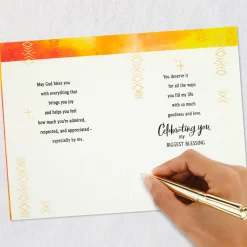 May God bless you
with everything that
brings you joy
and helps you feel
how much you're admired,
respected, and appreciated–
especially by me.
You deserve it
for all the ways
you fill my life
with so much
goodness and love.
Celebrating you,
my
BIGGEST BLESSING